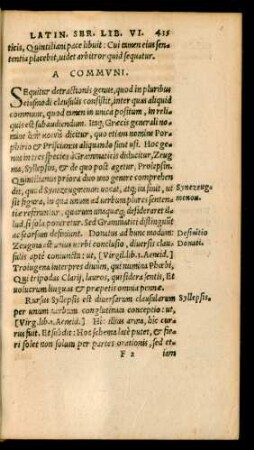 LATIN. SER. LIB. VI. 435
ticis, Quintiliani pace libuit: Cui tamen eius sen
tentia placebit, ut det arbitror quid sequatur.
A COMMVNI.
SEquitur detractionis genus, quod in pluribus
eiusmodi clausulis consistit, inter quas aliquid
commune, quod tamen in unca positum, in reli
quis est subaudiendum. Itaq; Græci generali no
mine dicitur, quo etiam nomine Por
phirio & Priscianus aliquando sunt usi. Hoc ge
nus in tres species à Grammaticis diducitur, Zeug
ma, Syllepsin, & de quo post agetur, Prolepsin.
Quintilianus priora duo uno genere comprehen
dit, quod Synezeugmenon uocat, atq; ita finit, ut
sit figura, in qua unum ad uerbum plures senten-
tiæ referuntur, quarum unaquæq; desideraret il-
lud, si sola poneretur. Sed Grammatici distinguūt
ac seorsum definiunt. Donatus ad hunc modum:
Zeugma est unius uerbi conclusio, diuersis clau
sulis aptè coniuncta: ut, [Virgil. lib. 1. Aeneid.]
Troiugena interpres diuûm, qui numina Phœbi,
Qui tripodas Clarij, lauros, qui sidera sentis, Et
uolucrum linguas & præpetis omnia pennæ.
Rursus Syllepsis est diuersarum clausularum
per unum uerbum conglutinata conceptio: ut,
[Virg. lib. 1. Aeneid.] Hic illius arma, hic cur
rus fuit. Et subdit: Hoc schema latè patet, & fie
ri solet non solum per partes orationis, sed et-
F 2 iam
Synezeug-
menon.
Definitio
Donati.
Syllepsis.